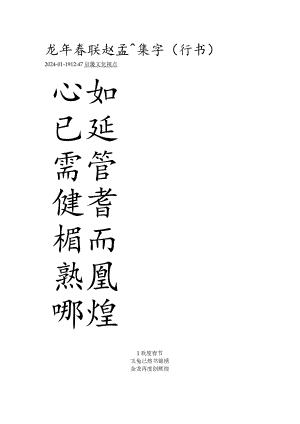 龙年春联赵孟^集字（行书）
2024-01-1912:47启箴文化视点
心如
已延
需管
健耆
楣而
熟凰
哪煌
1欢度春节
玉兔已然书锦绣
金龙再度创辉煌